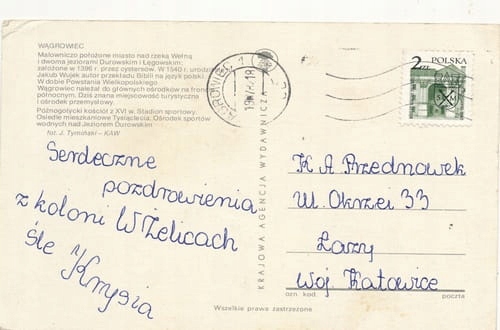 WĄGROWIEC
Malowniczo położone miasto nad rzeką Wełną
i dwoma jeziorami Durowskim i Łęgowskim,
założone w 1396 r. przez cystersów. W 1540 r. urodził
Jakub Wujek autor przekładu Biblii na język polski
W dobie Powstania Wielkopolskiego
Wągrowiec należał do głównych ośrodków na fron
północnym. Dziś znana miejscowość turystyczna
i ośrodek przemysłowy.
Późnogotycki kościół z XVI w. Stadion sportowy.
Osiedle mieszkaniowe Tysiąclecia. Ośrodek sportów
wodnych nad Jeziorem Durowskim
fot. J. Tymiński – KAW
Serdeczne
pozdrowienia
z koloni W Zelicach
śle Krysia
WĄGROWIEC 1
KRAJOWA AGENCJA WYDAWNICZA
2 ZŁ POLSKA
K A Przednowek
Ul. Okrzei 33
Łazy
Woj Katowice
ozn kod
poczta
Wszelkie prawa zastrzeżone